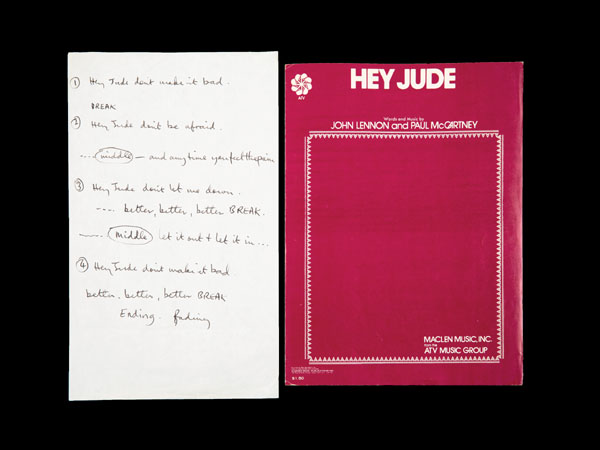 ① Hey Jude dont make it bad.
BREAK
② Hey Jude don't be afraid.
.... middle — and anytime you feel the pain
③ Hey Jude don't let me down.
---- better, better, better BREAK.
middle let it out + let it in ...
④ Hey Jude don't make it bad
better, better, better BREAK
Ending. fading
HEY JUDE
ATV
Words and Music by
JOHN LENNON and PAUL McCARTNEY
MACLEN MUSIC, INC.
from the
ATV MUSIC GROUP
$1.50